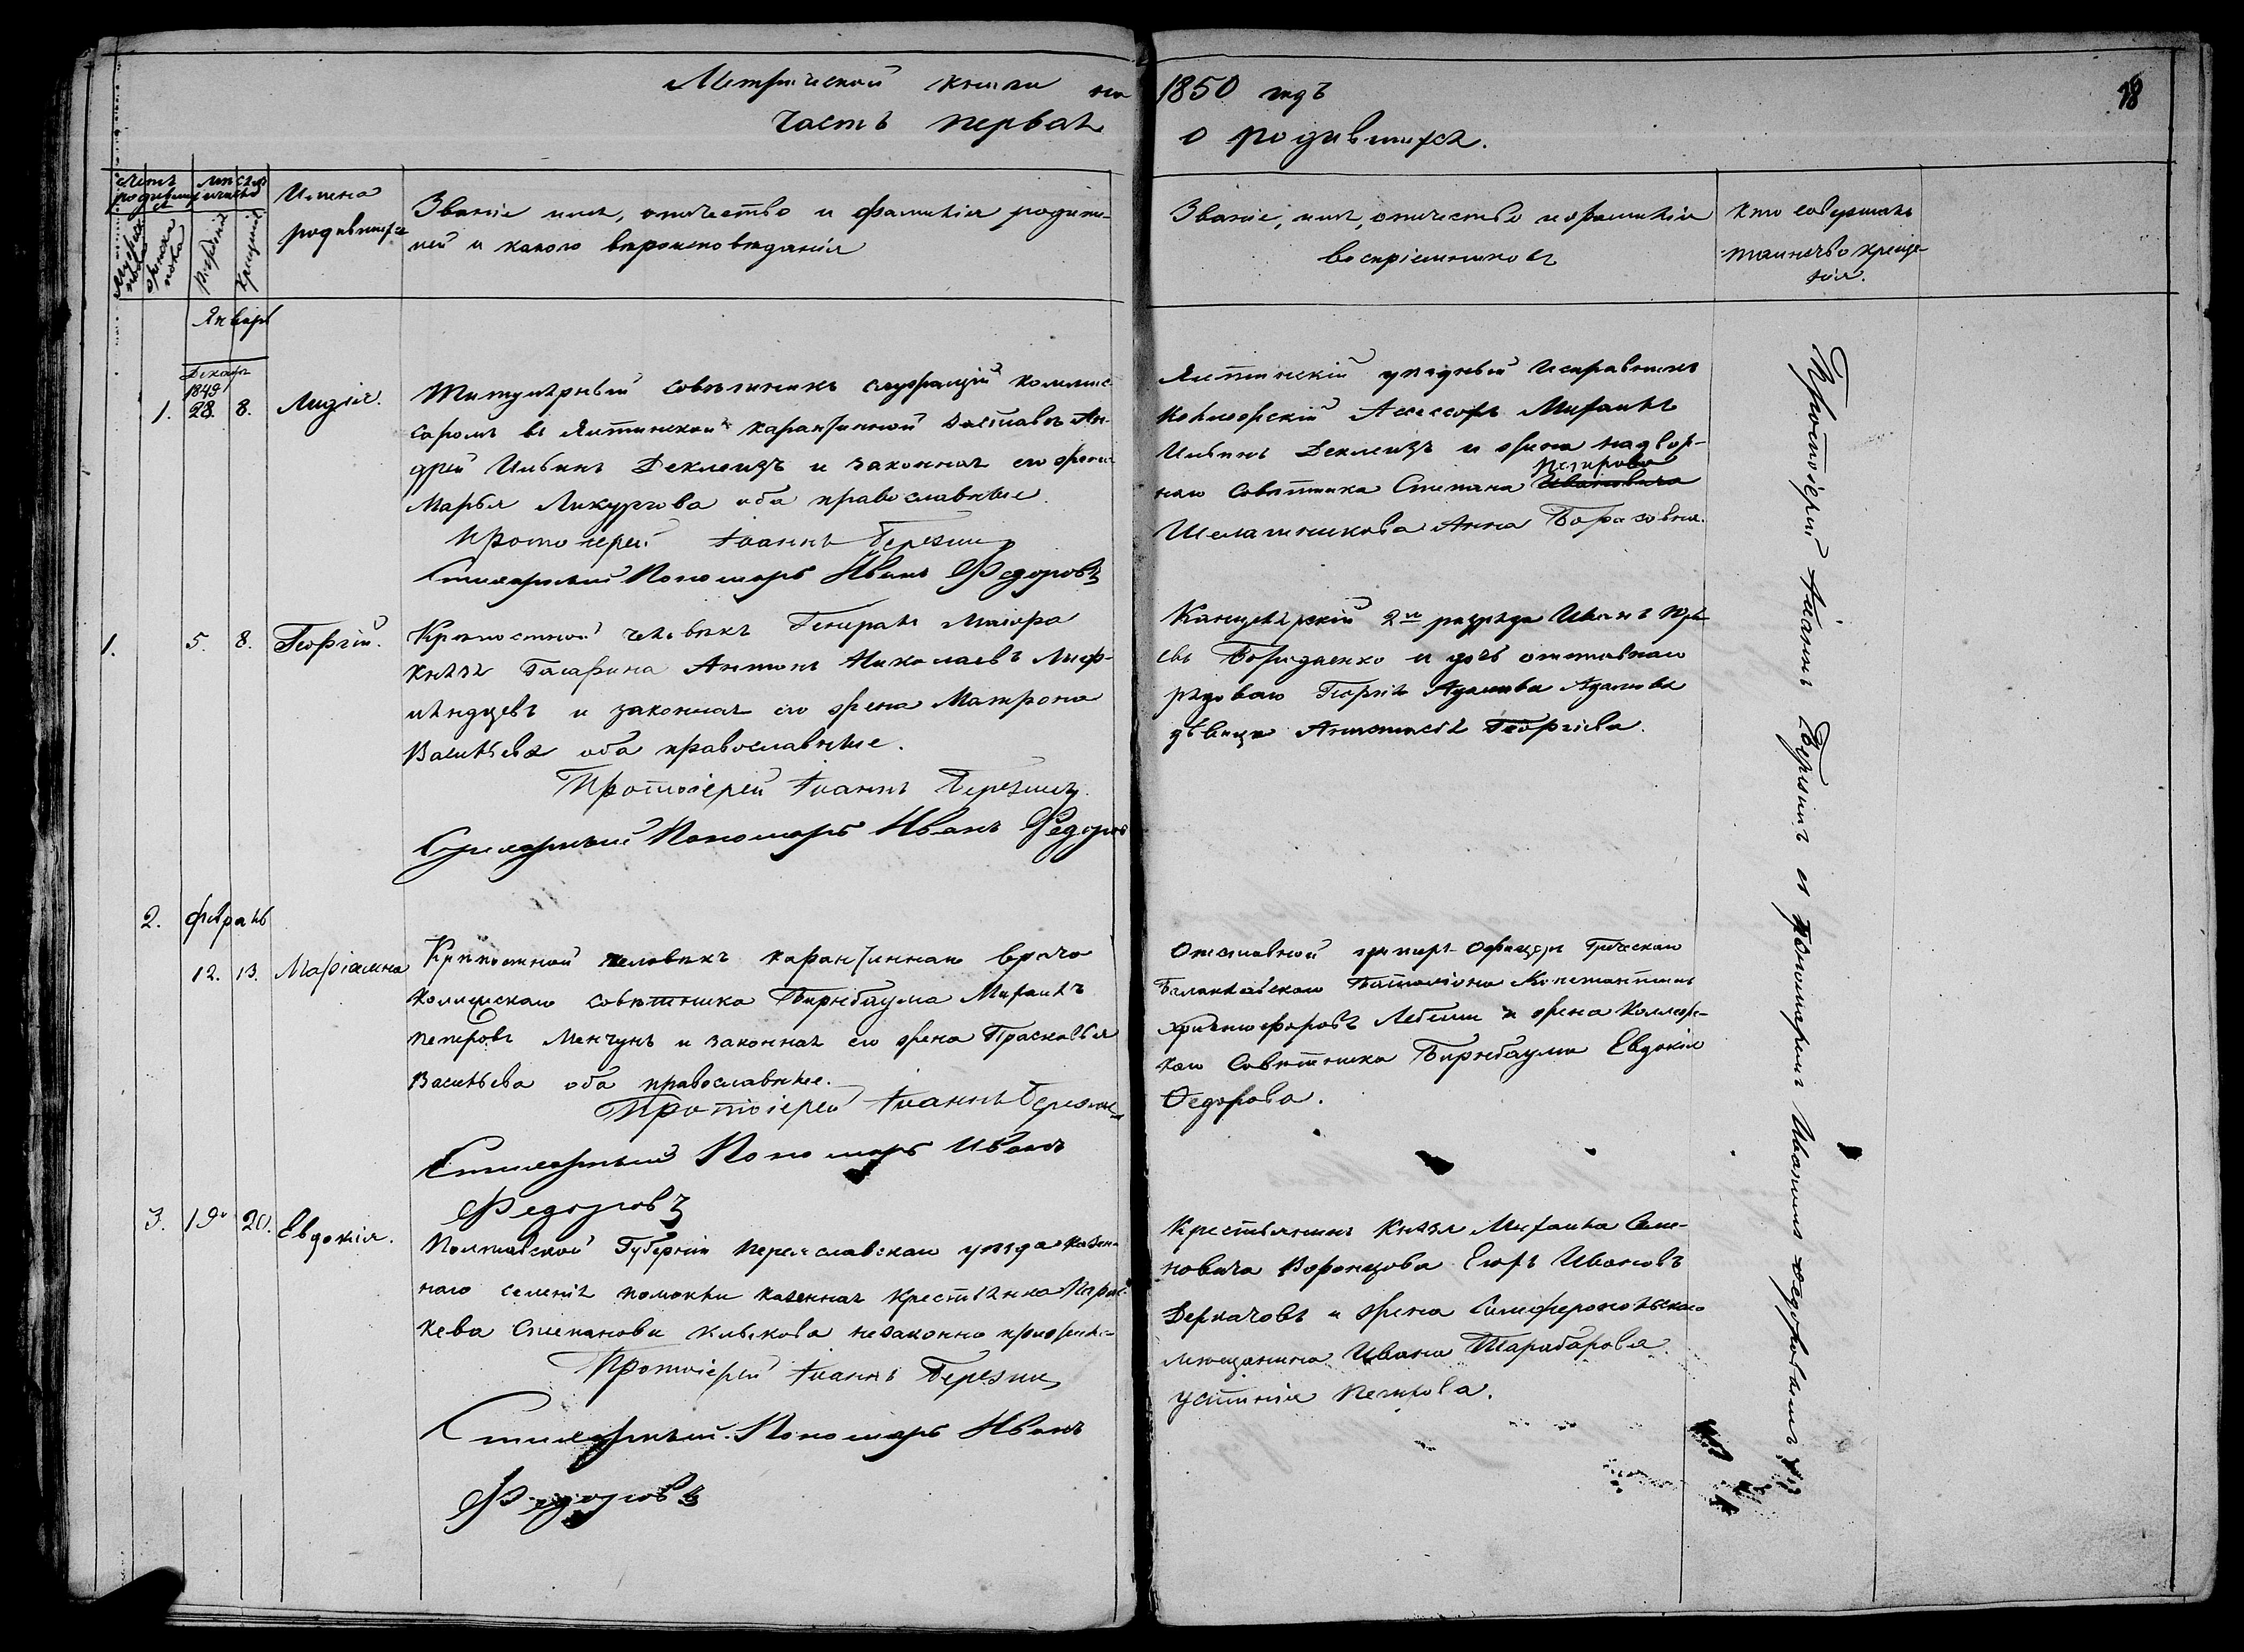 Метрической книги на 1850 годъ
18
Часть первая о родившихся.
Счетъ родившихся
Мѣсяцъ и число
Мужеска пола
Женска пола
Рожденія
Крещенія
Имена
родившихся
Званіе имя, отчество и фамилія родите-
лей и какого вѣроисповѣданія
Званіе, имя, отчество и фамилія
воспріемниковъ
Кто совершалъ
таинство креще-
нія.
Январь
Декабря
1849
1. 28. 8. Лидія.
Титулярный совѣтникъ служащій коммис-
саромъ въ Ялтинской карантинной заставѣ Ан-
дрей Ильинъ Деклеизъ и законная его жена
Марья Ликургова оба православные.
Протоіерей Іоаннъ Березинъ
Стихарный Пономарь Иванъ Федоровъ
Ялтинскій уѣздный Исправникъ
Коллежскій Ассессоръ Михаилъ
Ильинъ Деклеизъ и жена надвор-
наго Совѣтника Степана Ивановича
Петрова
Шелашникова Анна Борисовна.
1. 5. 8. Георгій.
Крѣпостной человѣкъ Генералъ Маіора
Князя Гагарина Антонъ Николаевъ
и законная его жена Матрона
Васильева оба православные.
Протоіерей Іоаннъ Березинъ
Стихарный Пономарь Иванъ Федоровъ
Канцелярскій 2го разряда Иванъ
и дочь отставнаго
рядоваго Георгія Адамова
дѣвица Анастасія Георгіева.
2. Февраль
12. 13. Маріамна
Крѣпостной человѣкъ карантиннаго врача
Коллежскаго совѣтника Бирнбаума Михаилъ
Петровъ Менчунъ и законная его жена Прасковья
Васильева оба православные.
Протоіерей Іоаннъ Березинъ
Стихарный Пономарь Иванъ
Федоровъ
Отставной унтеръ-Офицеръ Греческаго
Балаклавскаго Баталіона Константинъ
Христофоровъ и жена Коллеж-
каго Совѣтника Бирнбаума Евдокія
Федорова.
3. 19. 20. Евдокія.
Полтавской Губерніи Переяславскаго уѣзда казен-
наго селенія казенная крестьянка Парас-
кева Степанова незаконно
Протоіерей Іоаннъ Березинъ
Стихарный Пономарь Иванъ
Федоровъ
Крестьянинъ Князя Михаила Семе-
новича Воронцова Егоръ Ивановъ
Деркачовъ и жена Симферопольскаго
мѣщанина Ивана Тарабарова
Устинія Петрова.
Протоіерей Іоаннъ Березинъ съ Пономаремъ Иваномъ Федоровымъ